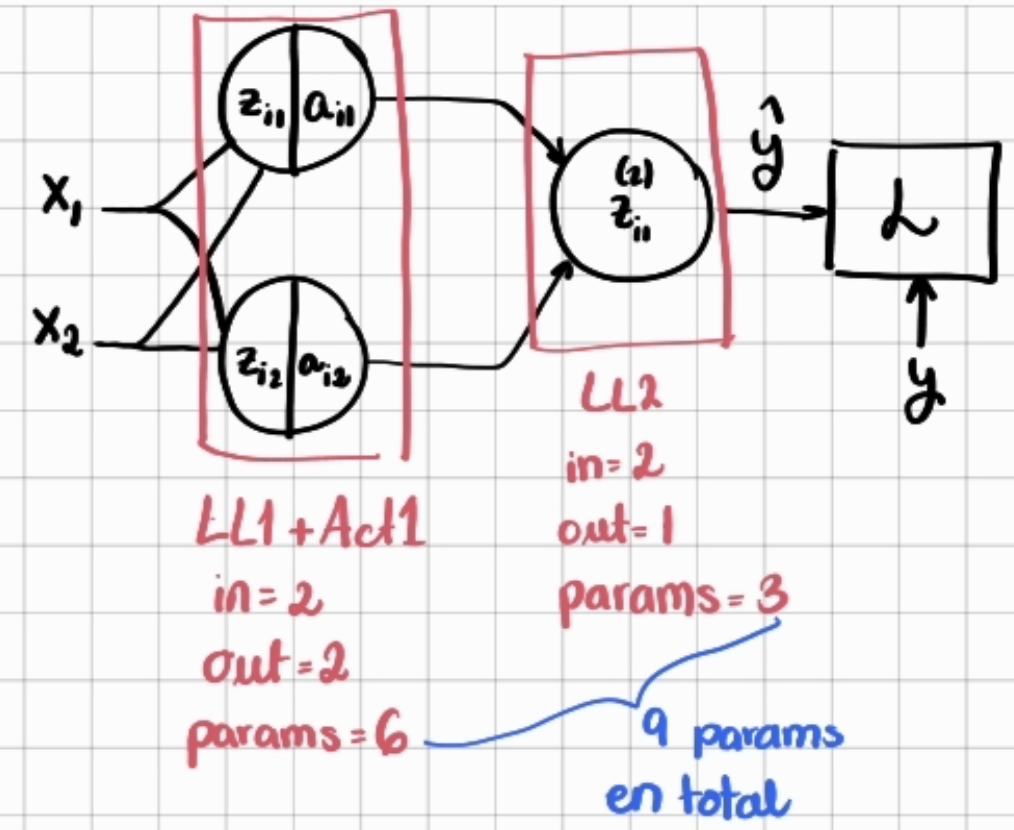 z_i1 | a_i1
X_1
X_2
z_i2 | a_i2
(2)
z_i1
ŷ
ℒ
y
LL1 + Act1
in = 2
out = 2
params = 6
LL2
in = 2
out = 1
params = 3
9 params
en total